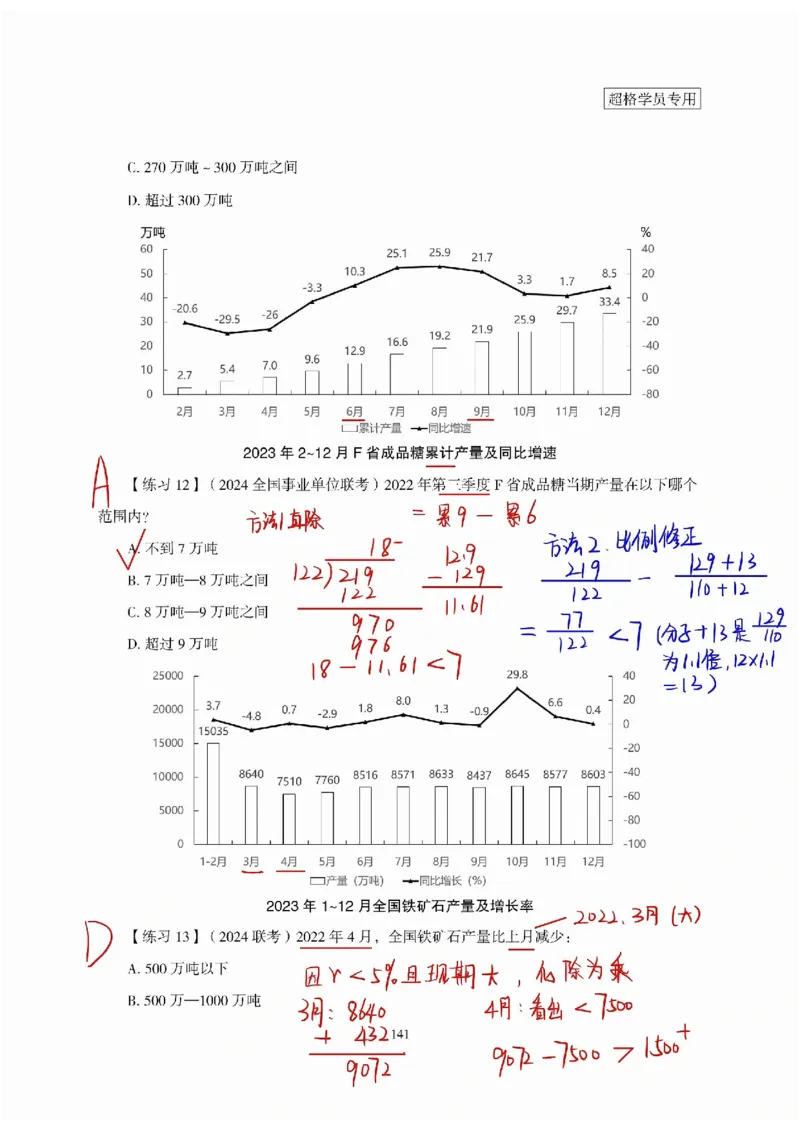 超格学员专用
C. 270 万吨 ~ 300 万吨之间
D. 超过 300 万吨
万吨 %
60 50 40 30 20 10 0
40 20 0 -20 -40 -60 -80
-20.6 -29.5 -26 -3.3 10.3 25.1 25.9 21.7 3.3 1.7 8.5
2.7 5.4 7.0 9.6 12.9 16.6 19.2 21.9 25.9 29.7 33.4
2月 3月 4月 5月 6月 7月 8月 9月 10月 11月 12月
累计产量 同比增速
2023 年 2~12 月 F 省成品糖累计产量及同比增速
A 【练习 12】（2024 全国事业单位联考）2022 年第三季度 F 省成品糖当期产量在以下哪个
范围内?
= 累9 - 累6
方法1 直除
A. 不到 7 万吨
B. 7 万吨—8 万吨之间
C. 8 万吨—9 万吨之间
D. 超过 9 万吨
18-
122)219
122
970
976
12.9
- 129
11.61
18 - 11.61 < 7
方法2. 比例修正
219/122 - 129+13/110+12
= 77/122 < 7 (分子+13是 129/110
为1.1倍, 12×1.1
=13)
25000 20000 15000 10000 5000 0
40 20 0 -20 -40 -60 -80 -100
3.7 -4.8 0.7 -2.9 1.8 8.0 1.3 -0.9 29.8 6.6 0.4
15035 8640 7510 7760 8516 8571 8633 8437 8645 8577 8603
1-2月 3月 4月 5月 6月 7月 8月 9月 10月 11月 12月
产量（万吨） 同比增长（%）
2023 年 1~12 月全国铁矿石产量及增长率
2022.3月 (大)
D 【练习 13】（2024 联考）2022 年 4 月，全国铁矿石产量比上月减少：
A. 500 万吨以下
B. 500 万—1000 万吨
因r<5%且现期大，化除为乘
3月: 8640
+ 432
9072
4月: 看出 < 7500
9072 - 7500 > 1500+
141